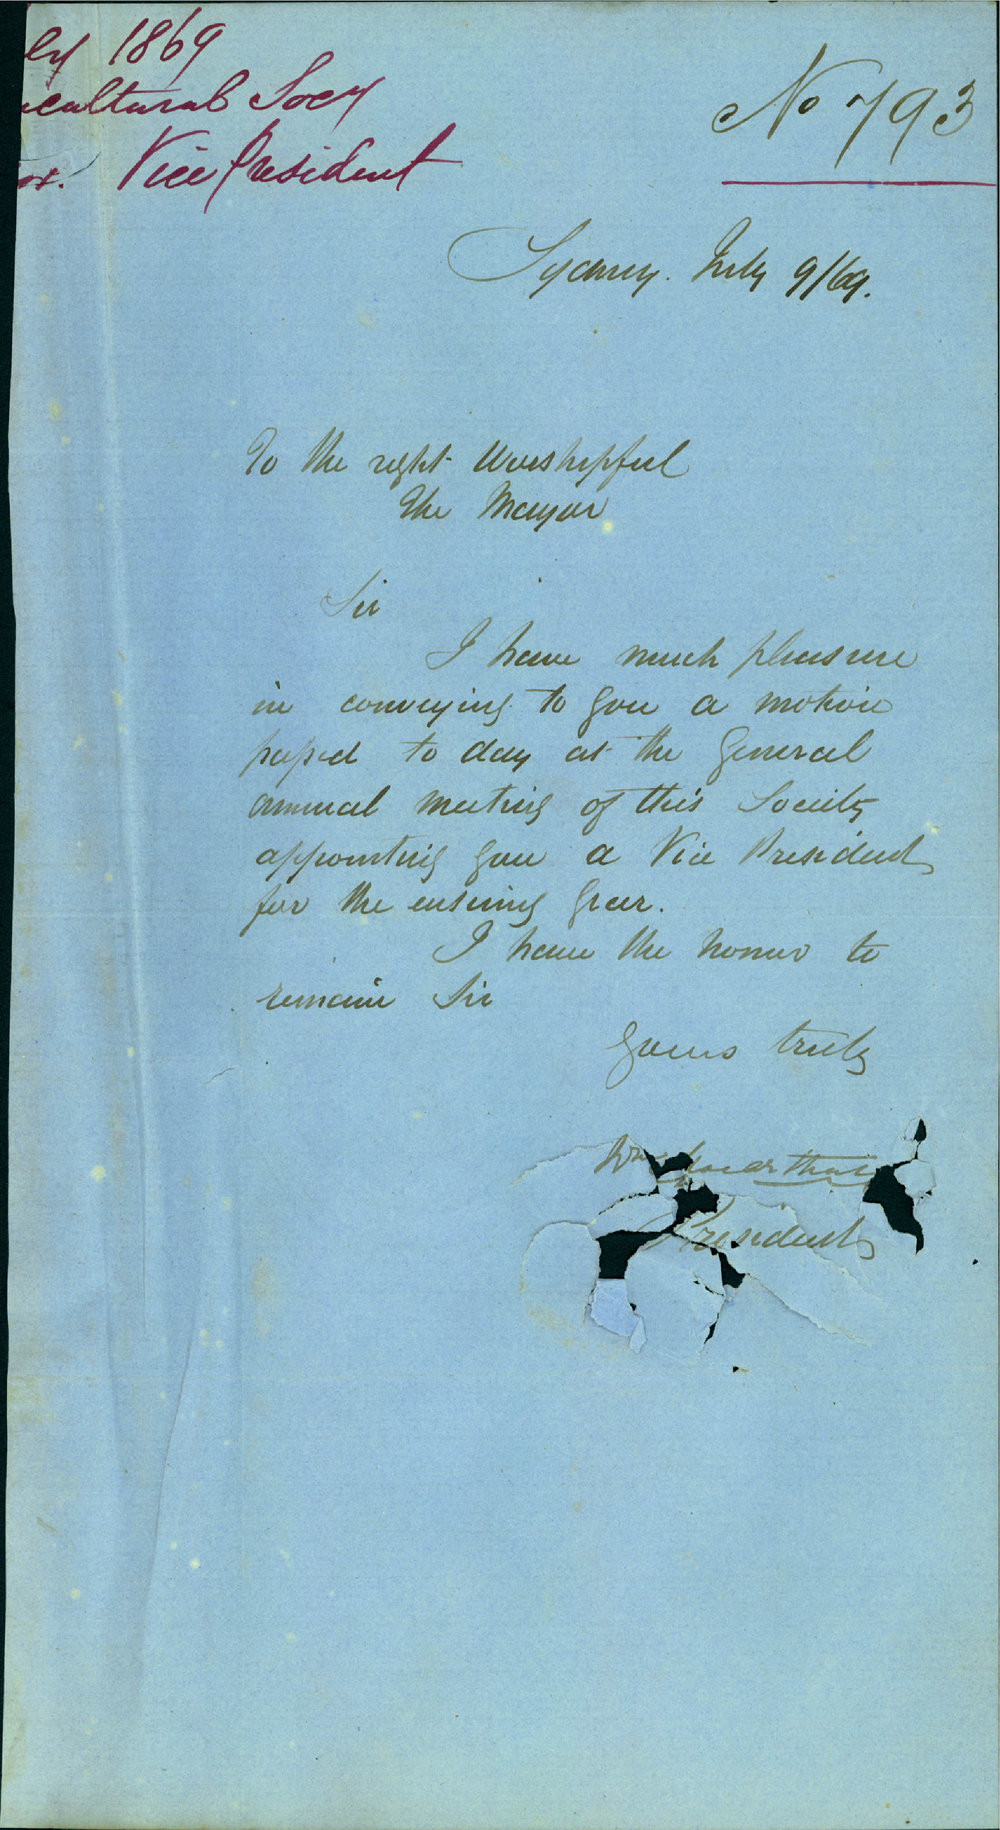 ly 1869
icultural Socy
Vice President
No 793
Sydney. July 9/69.
To the right Worshipful
The Mayor
Sir
I have much pleasure
in conveying to you a motion
passed to day at the General
annual meeting of this Society
appointing you a Vice President
for the ensuing year.
I have the honor to
remain Sir
Yours truly
Wm Macarthur
President